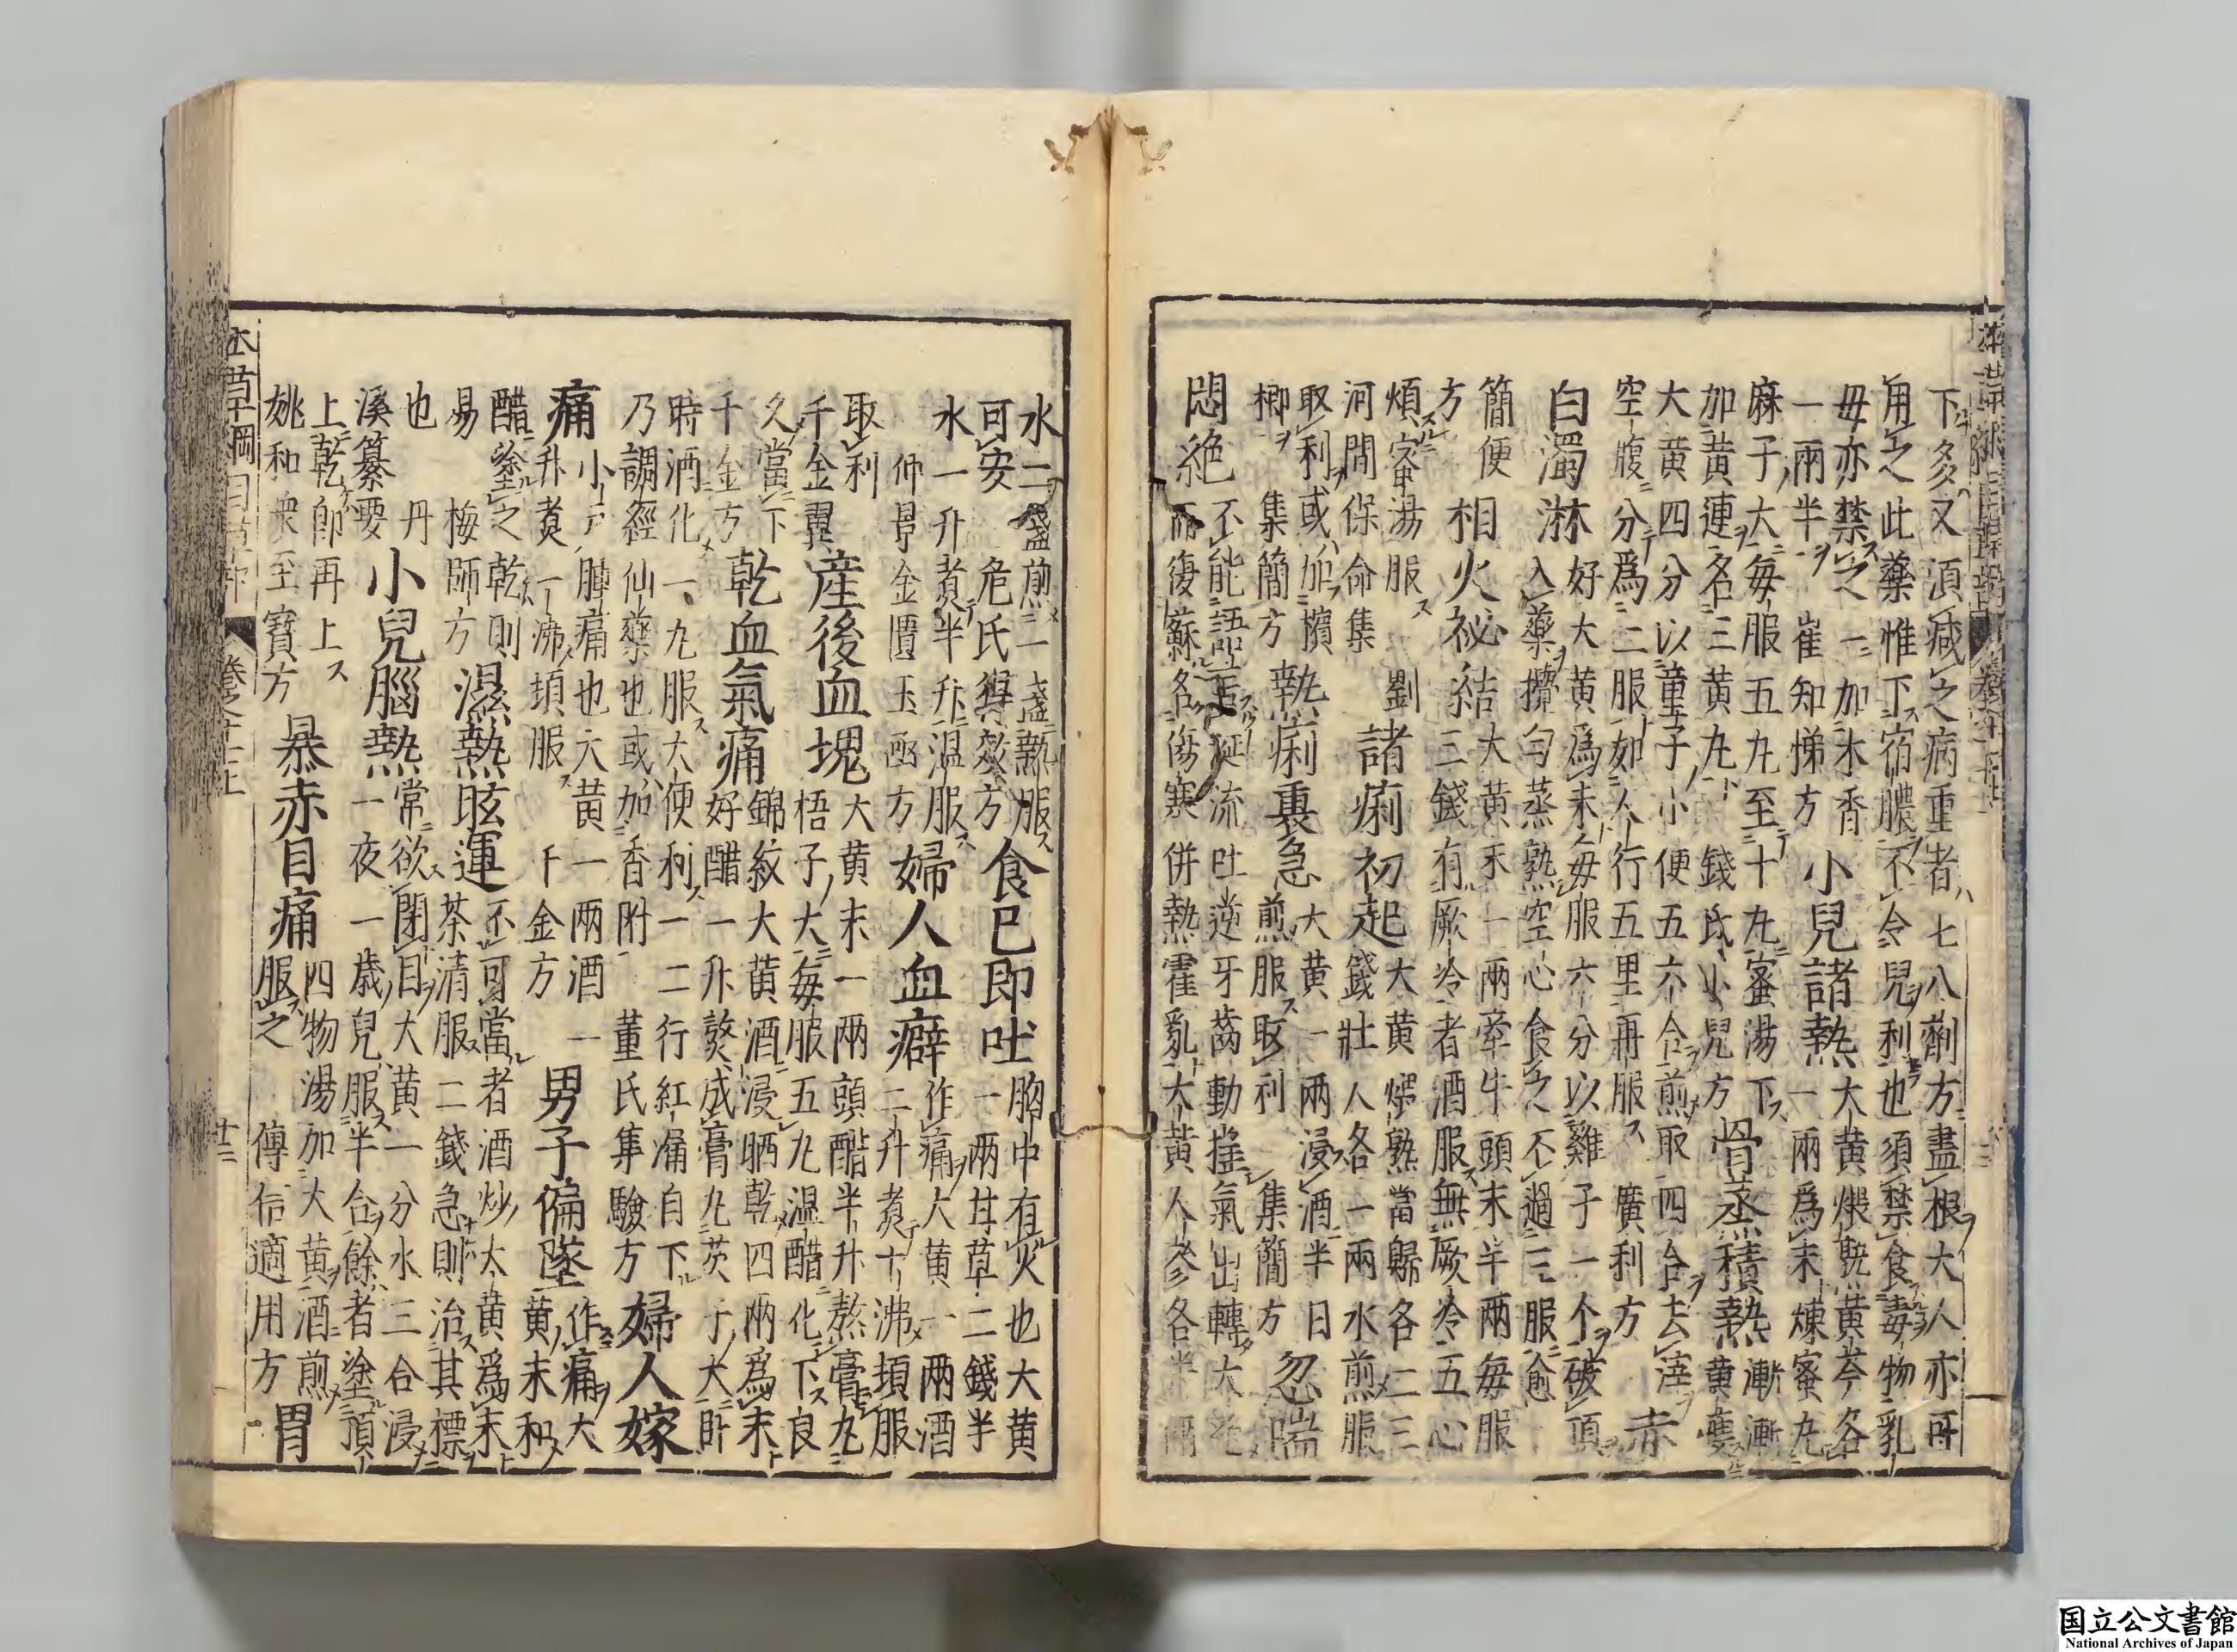 下多又須減之病重者七八劑方盡根大人亦可
用之此藥惟下宿膿不令兒利也須禁食毒物乳
母亦禁之一加木香
一兩半 崔知悌方
小兒諸熱
大黄煨熟黄芩各
一兩爲末煉蜜丸
麻子大每服五丸至十丸蜜湯下
加黄連名三黄丸 錢氏小兒方
骨蒸積熱
漸漸
黄瘦
大黄四分以童子小便五六合煎取四合去滓
空腹分爲二服如人行五里再服 廣利方
赤
白濁淋
好大黄爲末每服六分以雞子一个破頂
入藥攪勻蒸熟空心食之不過三服愈
簡便
方
相火祕結
大黄末一兩牽牛頭末半兩每服
三錢有厥冷者酒服無厥冷五心
煩蜜湯服 劉
河間保命集
諸痢初起
大黄煨熟當歸各二三
錢壯人各一兩水煎服
取利或加檳
榔 集簡方
熱痢裏急
大黄一兩浸酒半日
煎服取利 集簡方
忽喘
悶絶
不能語言涎流吐逆牙齒動搖氣出轉大
而復蘇名傷寒併熱霍亂大黄人參各半兩
水二盞煎一盞熱服
可安 危氏得效方
食已即吐
胸中有火也大黄
一兩甘草二錢半
水一升煮半升温服
仲景金匱玉函方
婦人血癖
作痛大黄一兩酒
二升煮十沸頓服
取利
千金翼
産後血塊
大黄末一兩頭醋半升熬膏丸
梧子大每服五丸温醋化下良
久當下
千金方
乾血氣痛
錦紋大黄酒浸晒乾四兩爲末
好醋一升熬成膏丸芡子大卧
時酒化一丸服大便利一二行紅漏自下
乃調經仙藥也或加香附 董氏集驗方
婦人嫁
痛
小戸腫痛也大黄一兩酒一
升煮一沸頓服 千金方
男子偏墜
作痛大
黄末和
醋塗之乾則
易 梅師方
濕熱眩運
不可當者酒炒大黄爲末
茶清服二錢急則治其標
也 丹
溪纂要
小兒腦熱
常欲閉目大黄一分水三合浸
一夜一歳兒服半合餘者塗頂
上乾即再上
姚和衆至寶方
暴赤目痛
四物湯加大黄酒煎
服之 傳信適用方
胃
本草綱目草部 廿二
国立公文書館
National Archives of Japan